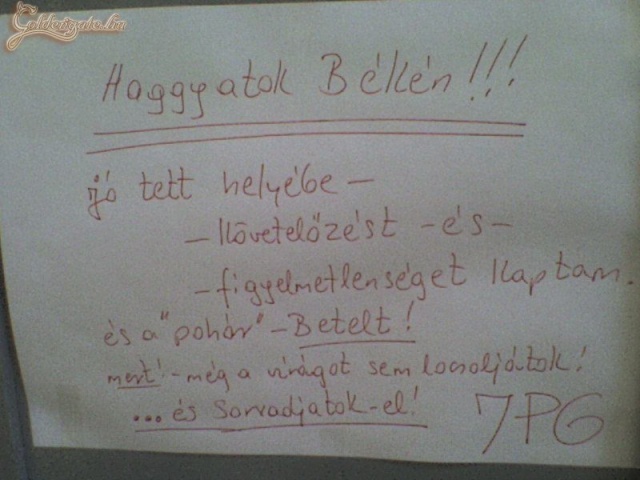 Cohhsignhs.hu
Haggyatok Békén!!!
jó tett helyébe —
— Követelőzést - és -
- figyelmetlenséget kaptam.
és a "pohár" - Betelt!
mert! - még a virágot sem locsoljátok!
... és Sorvadjatok - el!
7PG